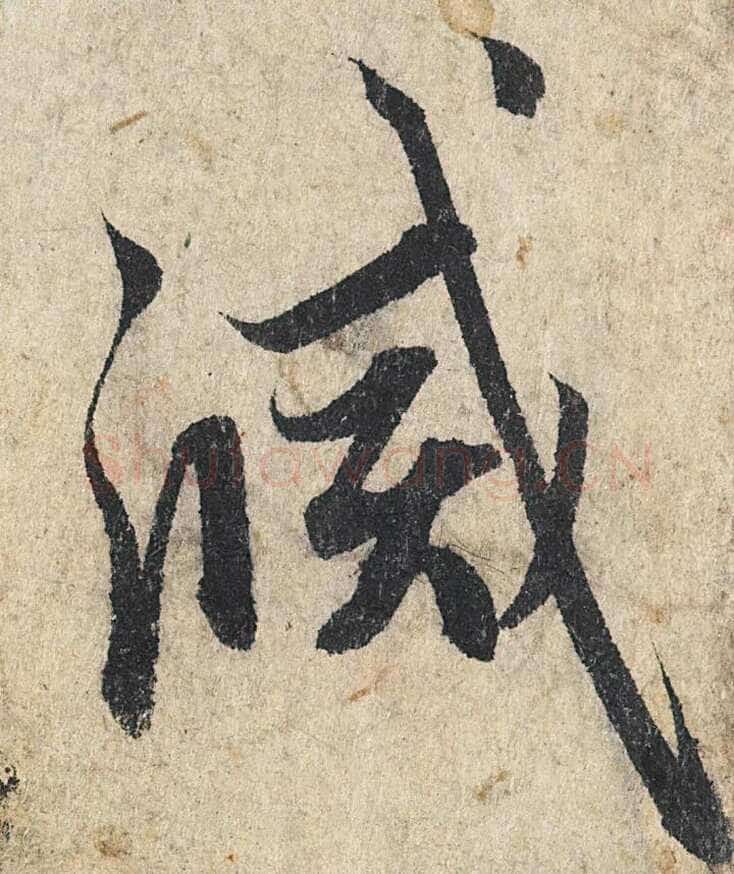 滅
shufawang.CN